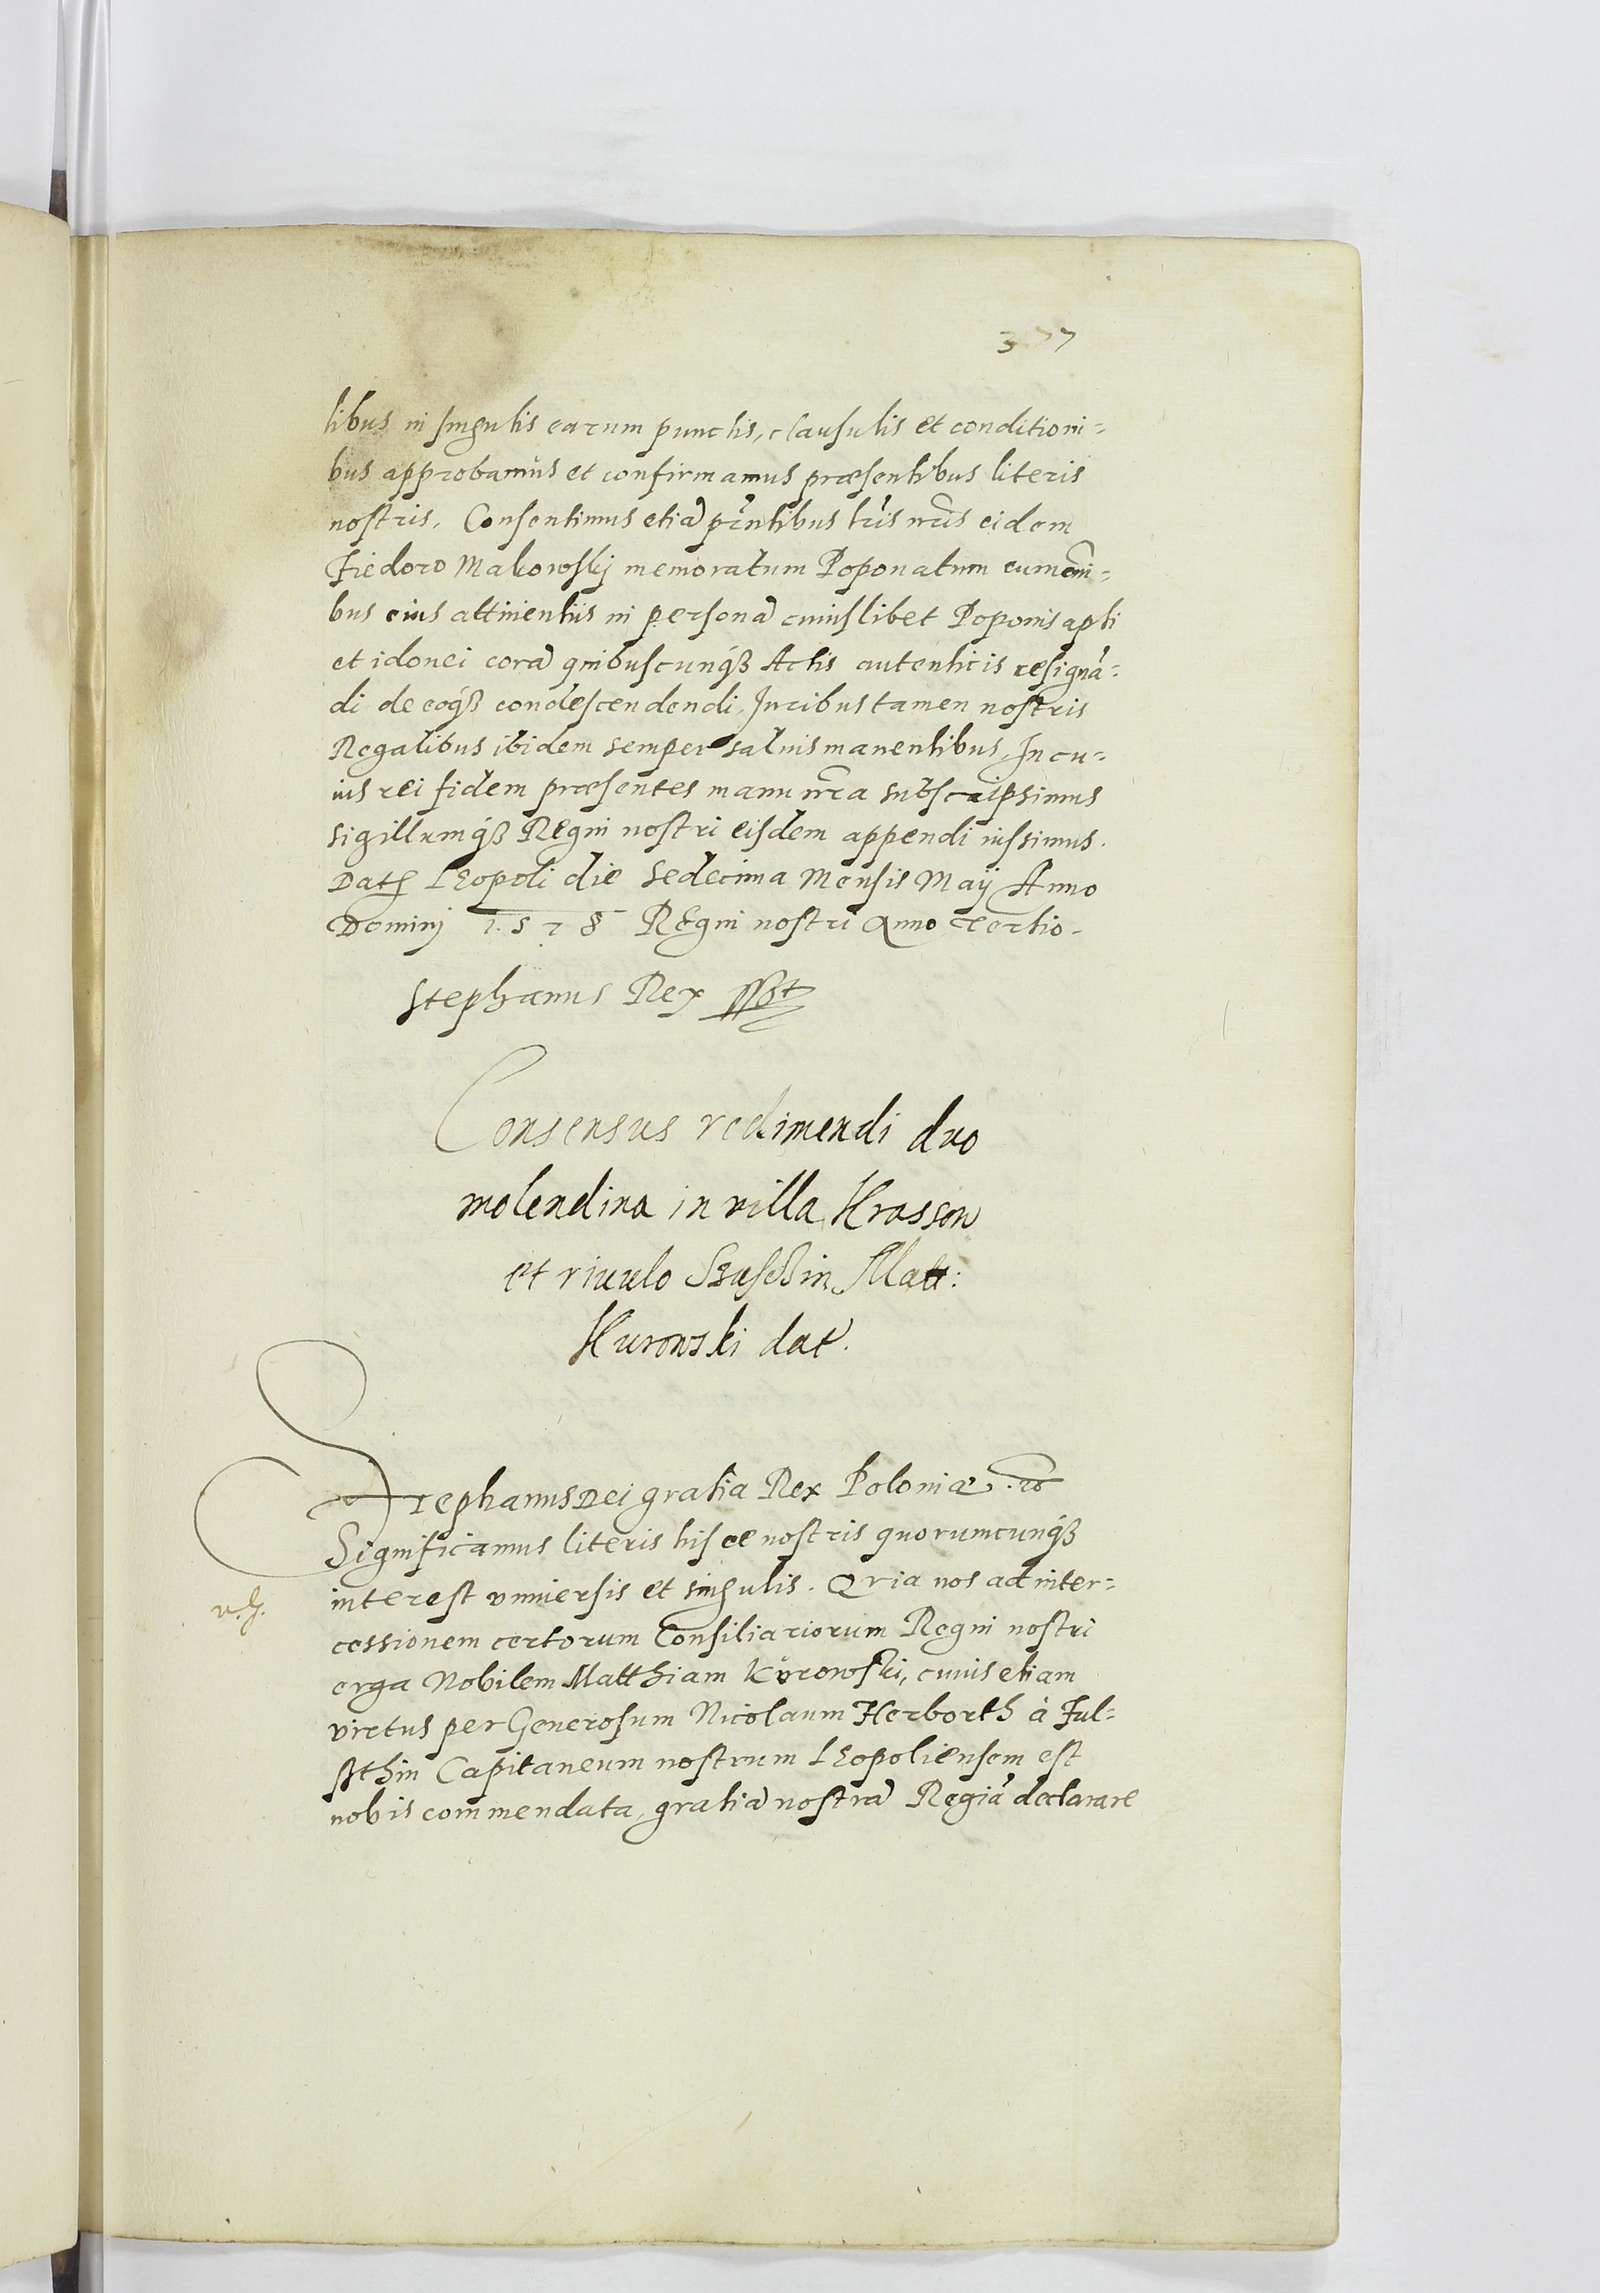 377
libus in singulis earum punctis, clausulis et conditioni=
bus approbamus et confirmamus præsentibus literis
nostris. Consentimus etiã pr̃ntibus lr̃is nr̃is eidem
Fiedoro Makowskij memoratum Poponatum cum om̃i=
bus eius attinentiis in personã cuiuslibet Poponis apti
et idonei corã quibuscunq́ꝫ Actis autenticis resignã=
di de eoq́ꝫ condescendendi, Iuribus tamen nostris
Regalibus ibidem semper saluis manentibus. In cu=
ius rei fidem præsentes manu nr̃a subscripsimus
sigillumq́ꝫ Regni nostri eisdem appendi iussimus.
Dat Leopoli die sedecima Mensis Maij Anno
Dominj 1578 Regni nostri Anno tertio.
Stephanus Rex sszt
Consensus redimendi duo
molendina in villa Krassow
et riuulo Matt:
Kurowski dat.
Stephanus Dei gratia Rex Poloniæ. etc
Significamus literis hisce nostris quorumcunq́ꝫ
interest vniuersis et singulis. Quia nos ad inter=
cessionem certorum Consiliariorum Regni nostri
erga Nobilem Matthiam Kurowski, cuius etiam
virtus per Generosum Nicolaum Herborth à Ful=
sthin Capitaneum nostrum Leopoliensem est
nobis commendata, gratiã nostrã Regiã declarare